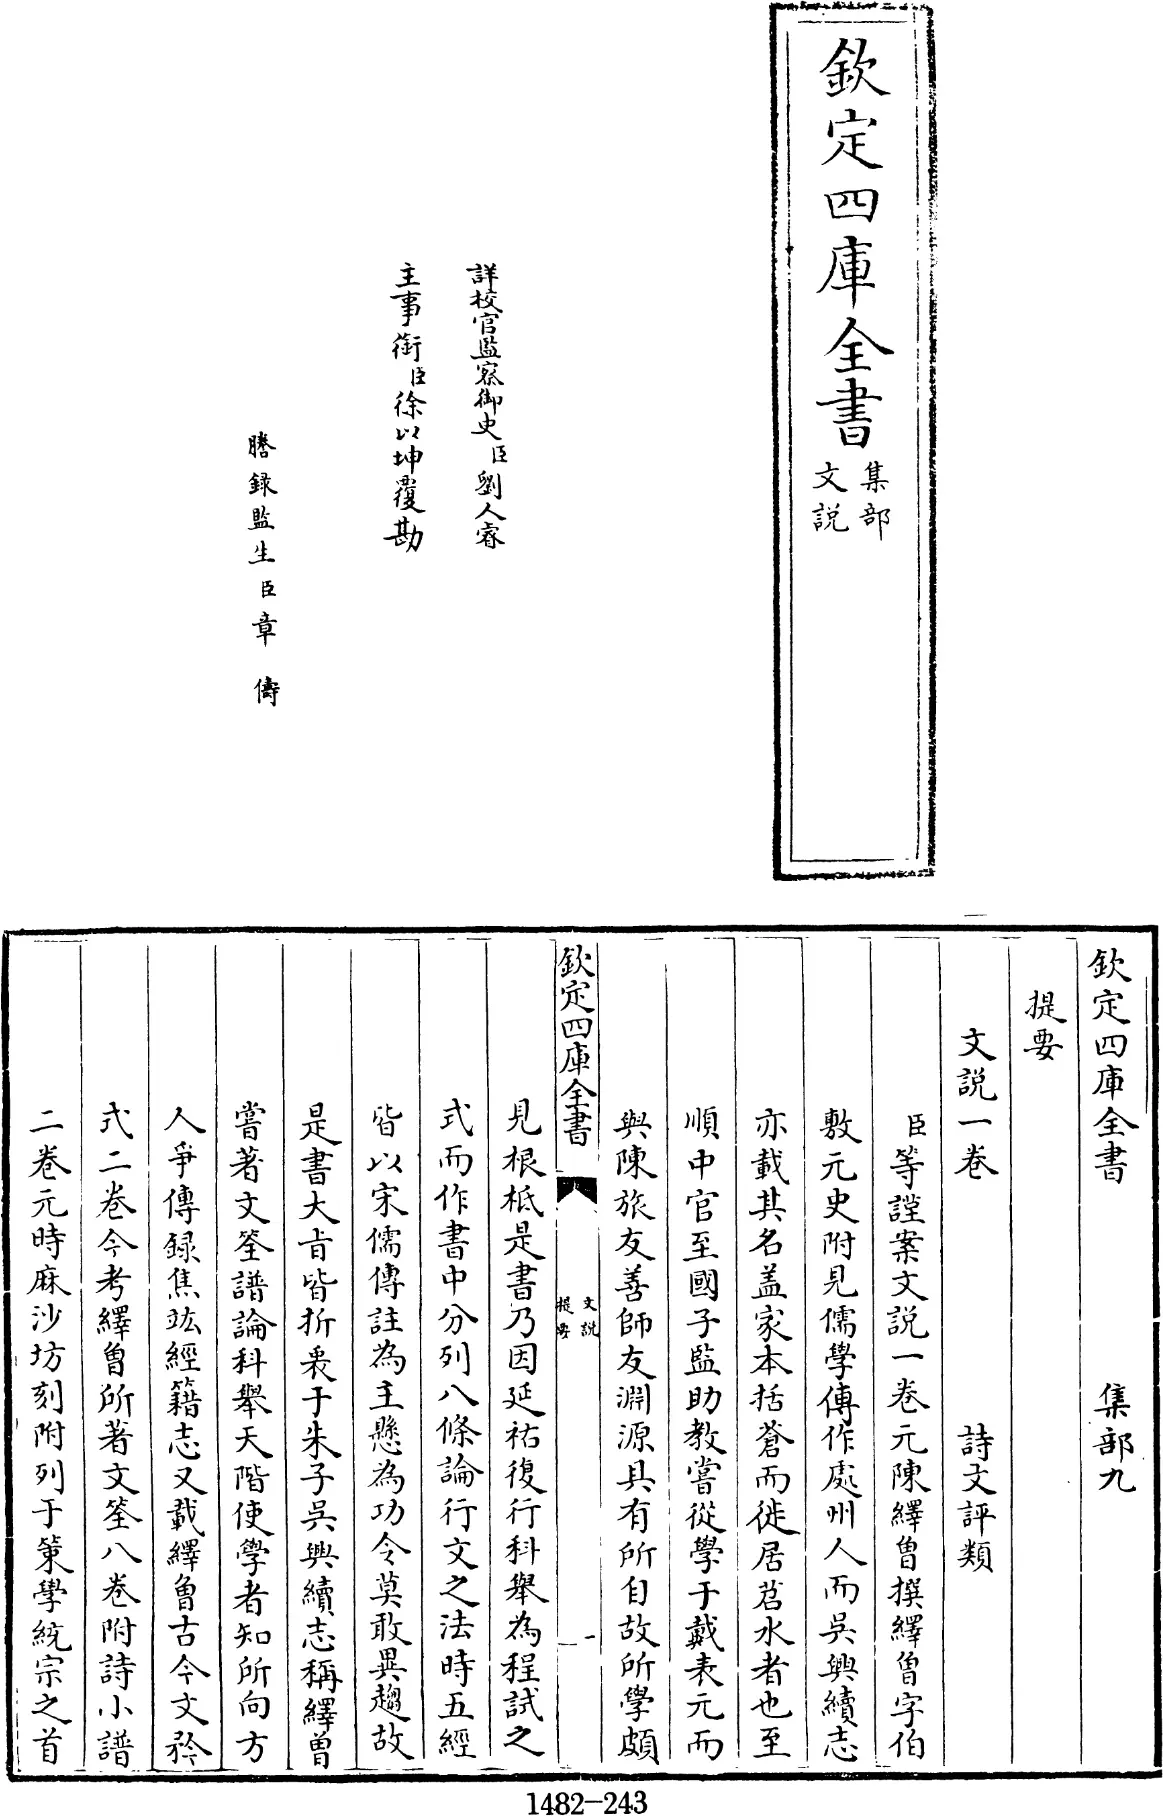 欽定四庫全書
集部
文說
詳校官監察御史臣劉人睿
主事銜臣徐以坤覆勘
謄録監生臣章儔
欽定四庫全書 集部九
提要
文說一卷 詩文評類
臣等謹案文說一卷元陳繹曾撰繹曾字伯
敷元史附見儒學傳作處州人而吳興續志
亦載其名盖家本括蒼而徙居苕水者也至
順中官至國子監助教嘗從學于戴表元而
與陳旅友善師友淵源具有所自故所學頗
欽定四庫全書
文說
提要
一
見根柢是書乃因延祐復行科舉為程試之
式而作書中分列八條論行文之法時五經
皆以宋儒傳註為主懸為功令莫敢異趨故
是書大旨皆折衷于朱子吳興續志稱繹曾
嘗著文筌譜論科舉天階使學者知所向方
人爭傳録焦竑經籍志又載繹曾古今文矜
式二卷今考繹曾所著文筌八卷附詩小譜
二卷元時麻沙坊刻附列于策學統宗之首
1482-243